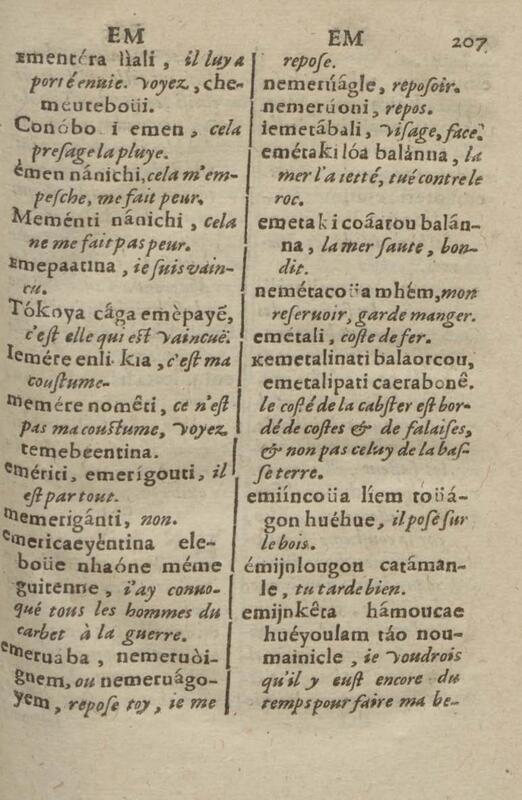 EM
ementéra lìali, il luy a
porté enuie. Voyez, che-
meuteboüi.
Conóbo i emen, cela
presage la pluye.
émen nánichi, cela m'em-
pesche, me fait peur.
Meménti nánichi, cela
ne me fait pas peur.
emepaatina, ie suis vain-
cu.
Tókoya cága emèpayé,
c'est elle qui est vaincuë.
Iemére enli kia, c'est ma
coustume-
memére nomêti, ce n'est
pas ma coustume, Voyez
temebeentina.
emériti, emerigouti, il
est par tout.
memerigánti, non.
emericaeyéntina ele-
boüe nhaóne méme
guitenne, i'ay conuo-
qué tous les hommes du
carbet à la guerre.
emeruába, nemeruòi-
gnem, ou nemeruágo-
yem, repose toy, ie me
EM 207
repose.
nemerúágle, reposoir.
nemerúoni, repos.
iemetábali, visage, face.
emétaki lóa balánna, la
mer l'a ietté, tué contre le
roc.
emetaki coáarou balán-
na, la mer saute, bon-
dit.
nemétacoüa mhém, mon
reseruoir, garde manger.
emetali, coste de fer.
Kemetalinati balaorcou,
emetalipati caerabonê.
le costé de la cabster est bor-
dé de costes & de falaises,
& non pas celuy de la bas-
se terre.
emiíncoüa líem toüá-
gon huéhue, il pose sur
le bois.
émijnlougou catáman-
le, tu tarde bien.
emijnkêta hámoucae
huéyoulam táo nou-
mainicle, ie voudrois
qu'il y eust encore du
temps pour faire ma be-